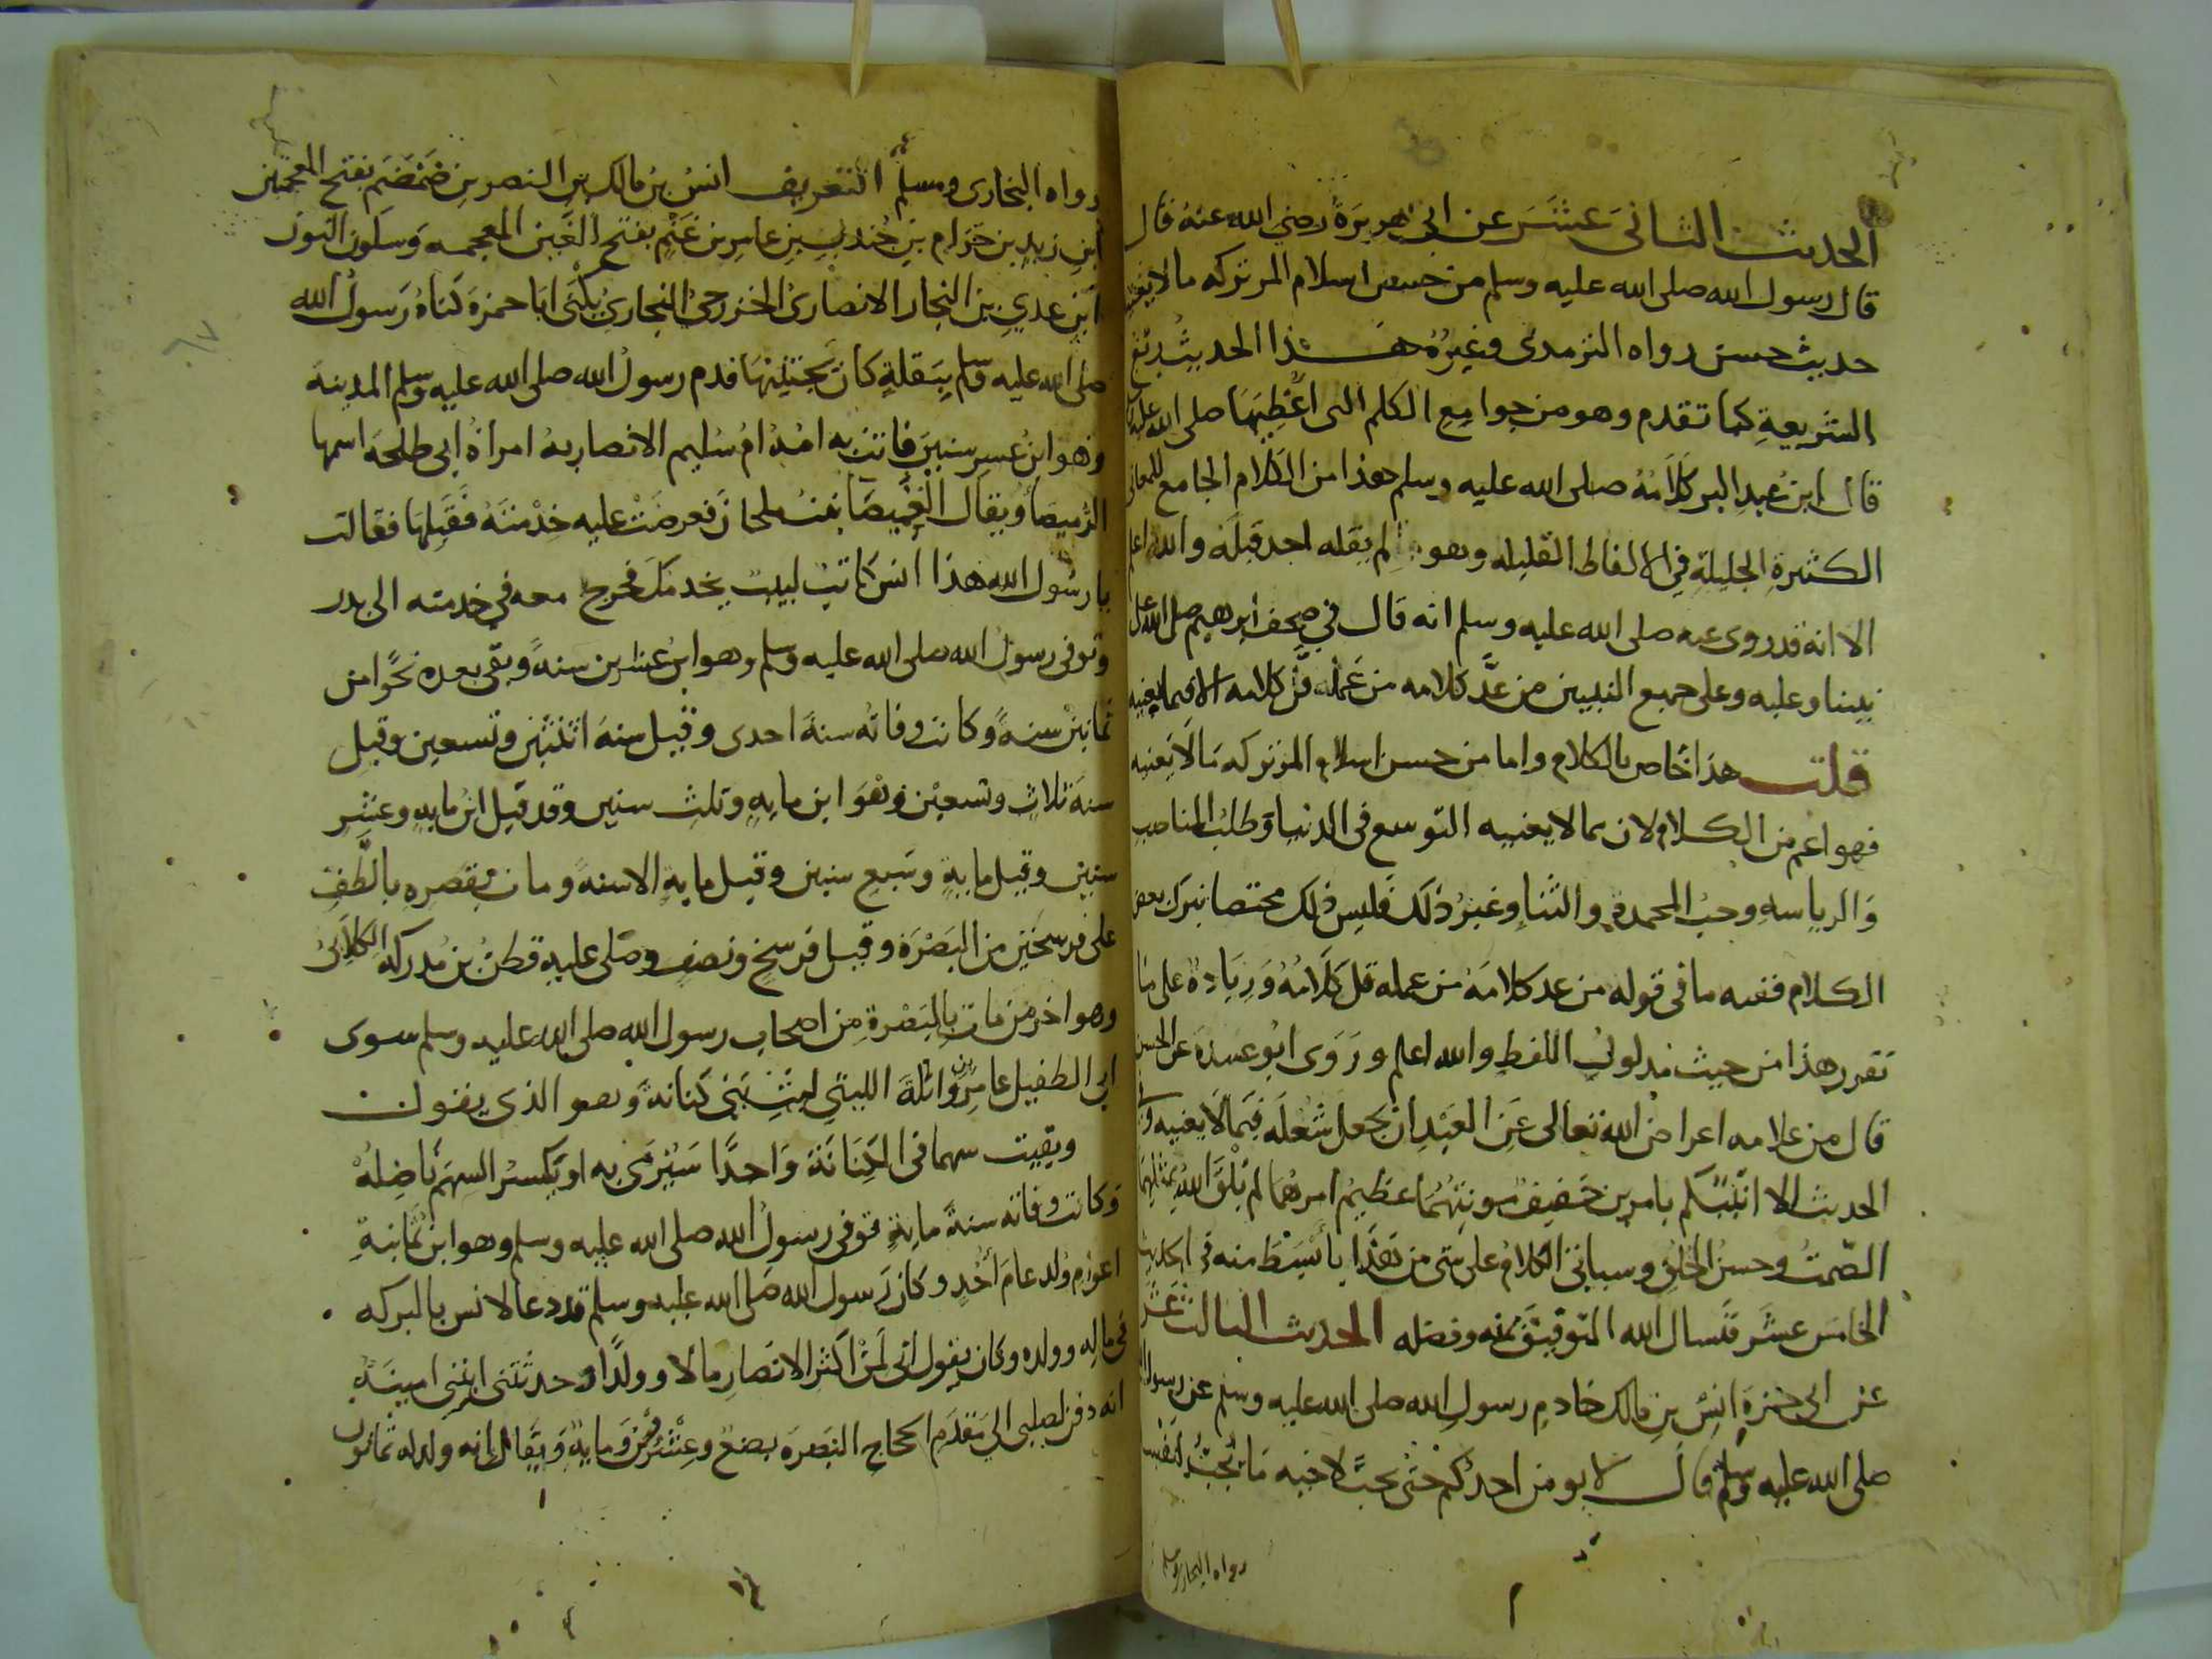 الحديث الثاني عشر عن ابي هريرة رضي الله عنه قال
قال رسول الله صلى الله عليه وسلم من حسن اسلام المرء تركه مالا يعنيه
حديث حسن رواه الترمذي وغيره هذا الحديث ربع
الشريعة كما تقدم وهو من جوامع الكلم التي اعطيها صلى الله عليه
قال ابن عبد البر كلامه صلى الله عليه وسلم هذا من الكلام الجامع للمعاني
الكثيرة الجليلة في الالفاظ القليله وهو لم يقله احد قبله والله اعلم
الا انه قد روى عنه صلى الله عليه وسلم انه قال في صحف ابرهيم صلى الله على
نبينا وعليه وعلى جميع النبيين من عد كلامه من عمله قل كلامه الا فيما يعنيه
قلت هذا خاص بالكلام واما من حسن اسلام المرء تركه مالا يعنيه
فهو اعم من الكلام لان مما لا يعنيه التوسع في الدنيا وطلب المناصب
والرياسه وحب المحمدة والثناء وغير ذلك فليس ذلك مختصا بترك بعض
الكلام ففيه ما في قوله من عد كلامه من عمله قل كلامه وزيادة على ما
تقرر هذا من حيث مدلول اللفظ والله اعلم وروى ابو عبيدة عن الحسن
قال من علامه اعراض الله تعالى عن العبد ان يجعل شغله فيما لا يعنيه وفي
الحديث الا انبئكم بامرين خفيف مونتهما عظيم امرهما لم يلق الله بمثلهما
الصمت وحسن الخلق وسياتي الكلام على شي من هذا بابسط منه في الحديث
الخامس عشر فنسال الله التوفيق بمنه وفضله الحديث الثالث عشر
عن ابي حمزة انس بن مالك خادم رسول الله صلى الله عليه وسلم عن رسول الله
صلى الله عليه وسلم قال لا يومن احدكم حتى يحب لاخيه ما يحب لنفسه
رواه البخاري ومسلم
رواه البخاري ومسلم التعريف انس بن مالك بن النصر بن ضمضم بفتح المعجمتين
ابن زيد بن حرام بن جندب بن عامر بن غنم بفتح الغين المعجمه وسكون النون
ابن عدي بن النجار الانصاري الخزرجي النجاري يكنى ابا حمزة كناه رسول الله
صلى الله عليه وسلم ببقلة كان يجتنيها قدم رسول الله صلى الله عليه وسلم المدينه
وهو ابن عشر سنين فاتت به امه ام سليم الانصاريه امراة ابي طلحه اسمها
الرميصا ويقال الغميصا بنت ملحان فعرضت عليه خدمته فقبلها فقالت
يا رسول الله هذا انس كاتب لبيب يخدمك فخرج معه في خدمته الى بدر
وتوفي رسول الله صلى الله عليه وسلم وهو ابن عشرين سنة وبقي بعده نحوا من
ثمانين سنة وكانت وفاته سنة احدى وقيل سنة اثنتين وتسعين وقيل
سنة ثلاث وتسعين وهو ابن مايه وثلث سنين وقد قيل ابن مايه وعشر
سنين وقيل ماية وسبع سنين وقيل ماية الا سنة ومات بقصره بالطف
على فرسخين من البصرة وقيل فرسخ ونصف وصلى عليه قطن بن مدركه الكلابي
وهو اخر من مات بالبصرة من اصحاب رسول الله صلى الله عليه وسلم سوى
ابي الطفيل عامر بن واثلة الليثي ليث بني كنانة وهو الذي يقول
وبقيت سهما في الكنانة واحدا سيرمى به او يكسر السهم ناضله
وكانت وفاته سنة ماية توفي رسول الله صلى الله عليه وسلم وهو ابن ثمانية
اعوام ولد عام احد وكان رسول الله صلى الله عليه وسلم قد دعا لانس بالبركه
في ماله وولده وكان يقول اني لمن اكثر الانصار مالا وولدا وحدثتني ابنتي امينة
انه دفن لصلبي الى مقدم الحجاج البصرة بضع وعشرون وماية ويقال انه ولد له ثمانون